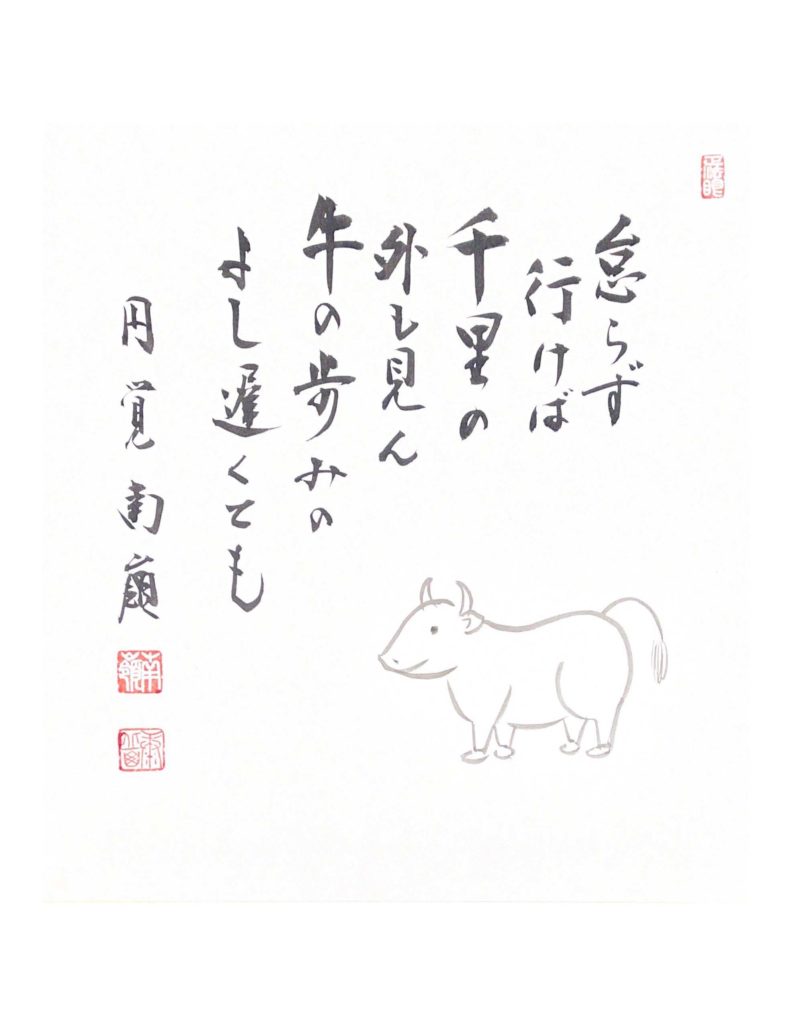 怠らず
行けば
千里の
外も見ん
牛の歩みの
よし遅くても
円覚南嶺
南嶺